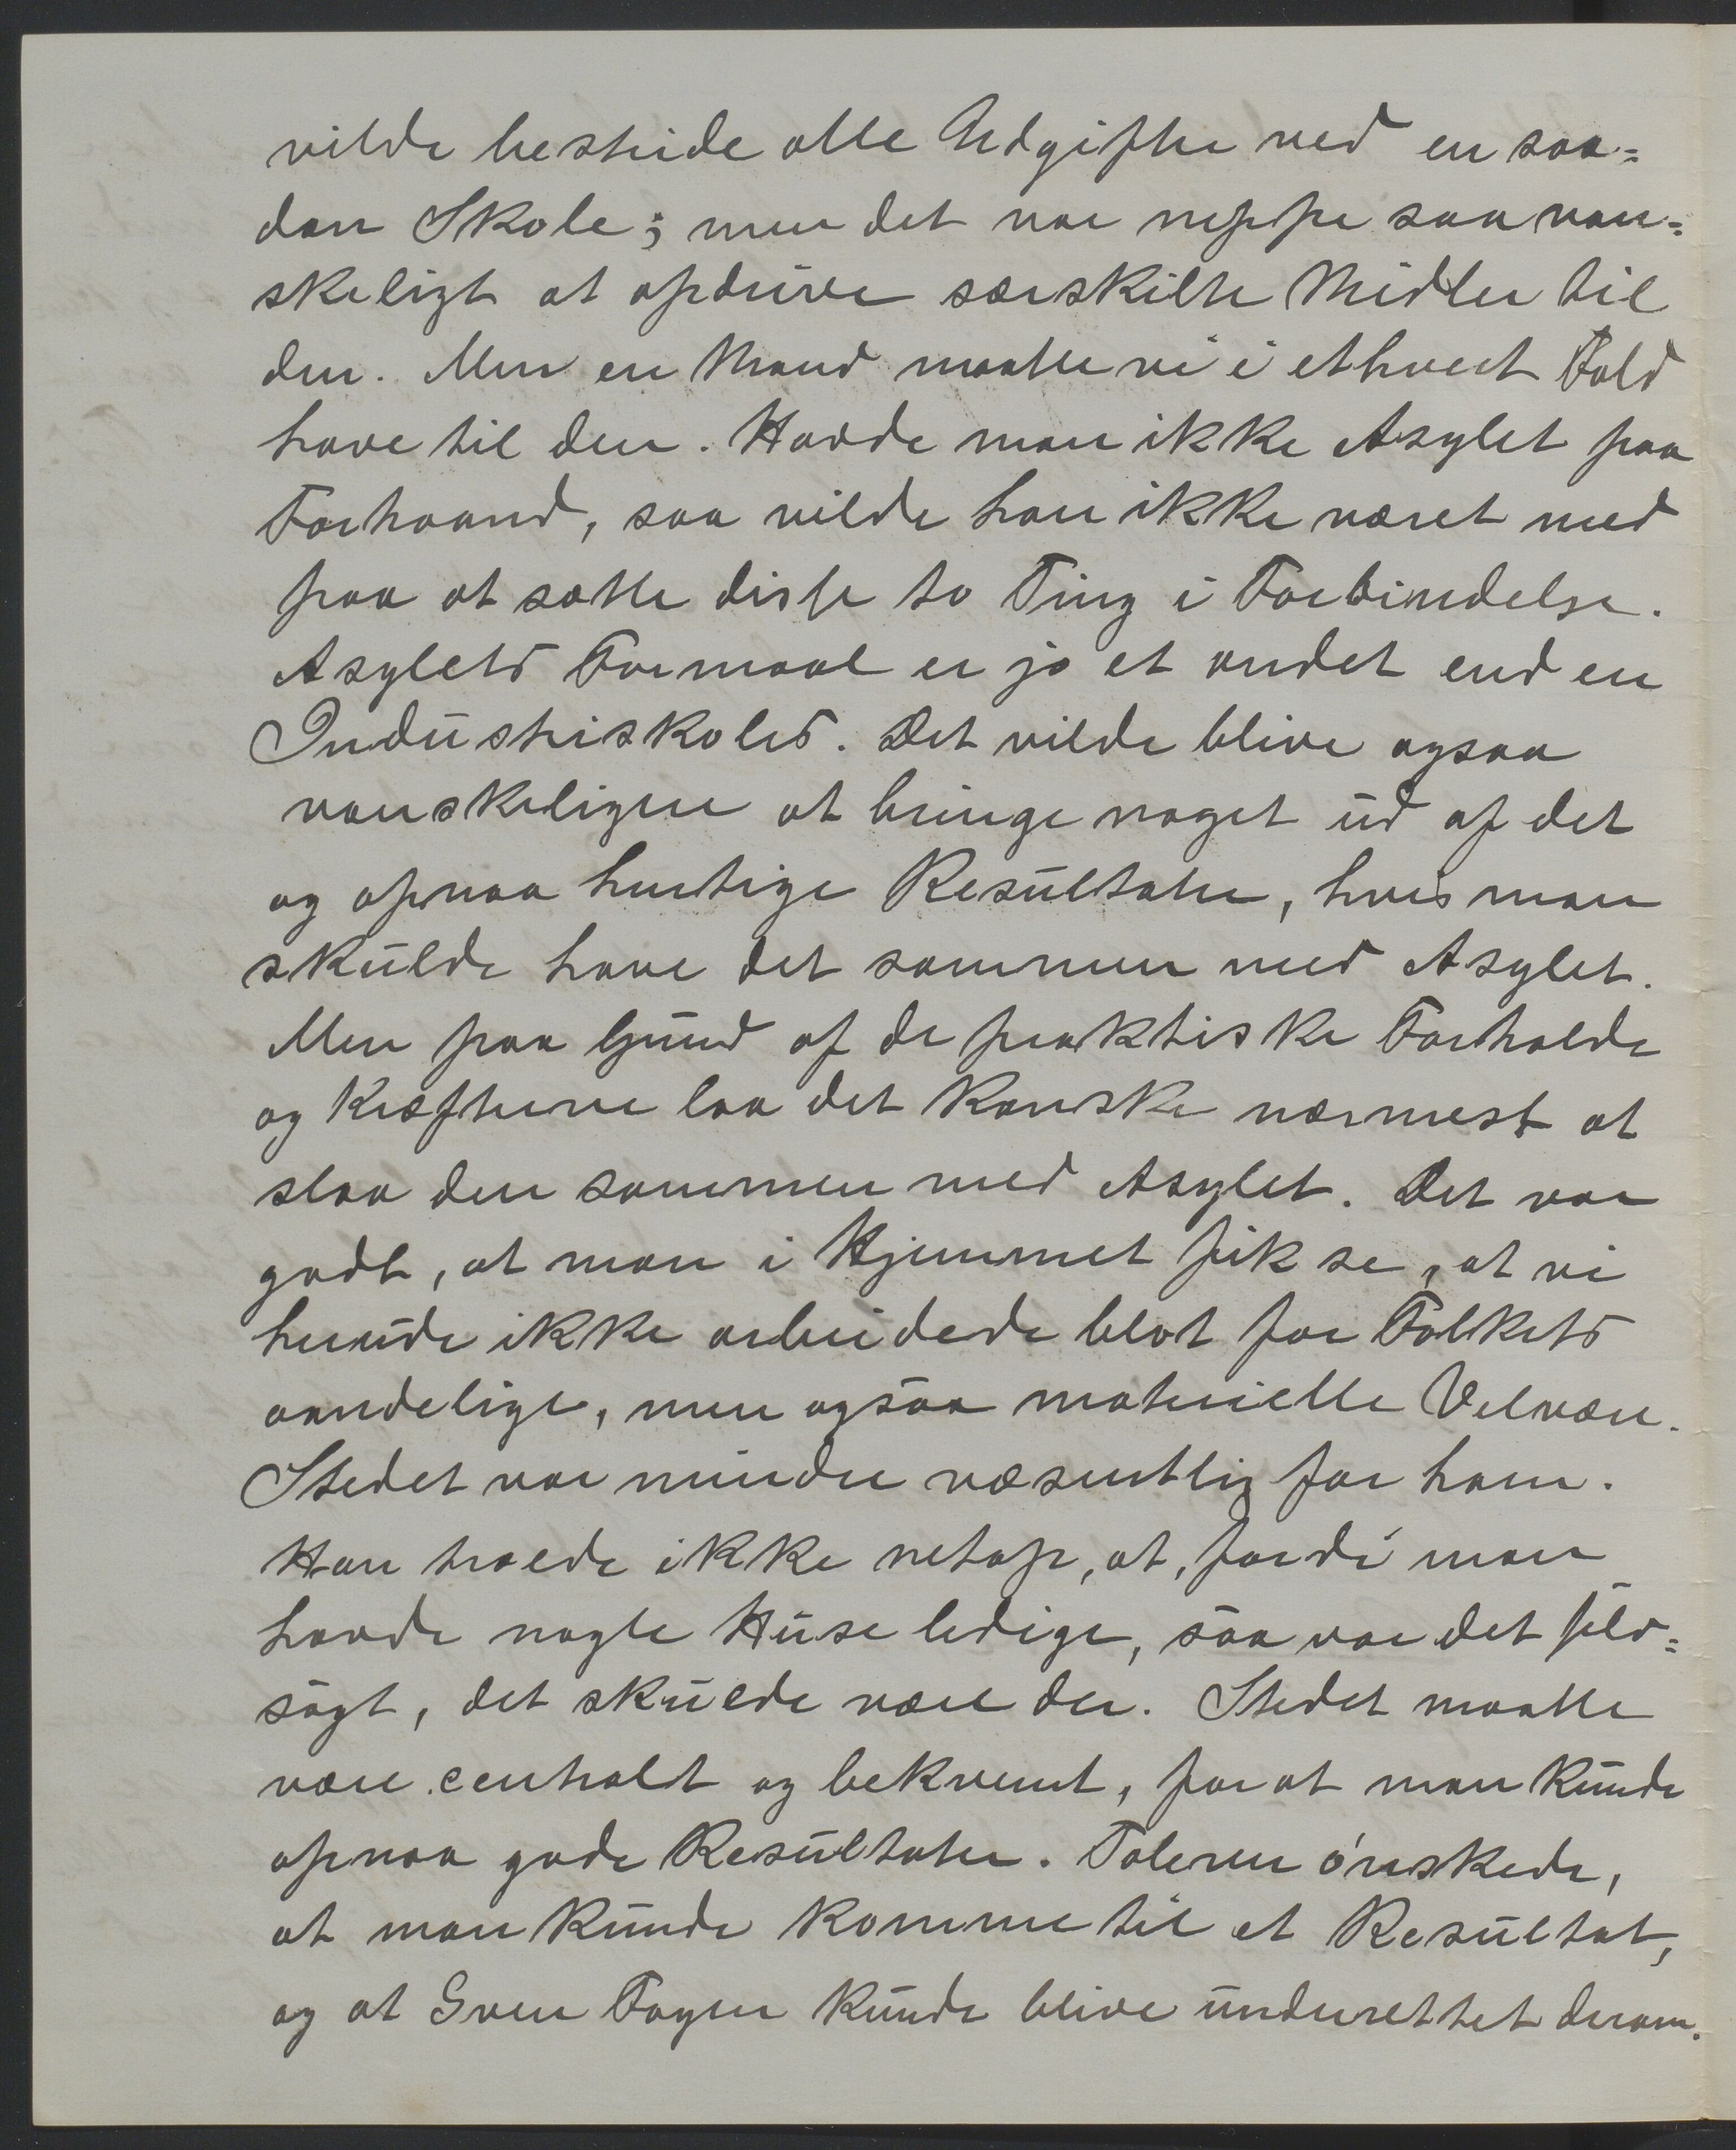 vilde bestride alle Udgifter ved en saa=
dan Skole; men det var neppe saa van=
skeligt at opdrive særskilte Midler til
den. Men en Mand maatte vi i ethvert Fald
have til den. Havde man ikke Asylet paa
Forhaand, saa vilde han ikke været med
paa at sætte disse to Ting i Forbindelse.
Asylets Formaal er jo et andet end en
Industriskoles. Det vilde blive ogsaa
vanskeligere at bringe noget ud af det
og opnaa hurtige Resultater, hvis man
skulde have det sammen med Asylet.
Men paa Grund af de praktiske Forholde
og Kræfterne laa det kanske nærmest at
slaa den sammen med Asylet. Det var
godt, at man i Hjemmet fik se, at vi
herude ikke arbeidede blot for Folkets
aandelige, men ogsaa materielle Velvære.
Stedet var mindre væsentlig for ham.
Han troede ikke netop, at, fordi man
havde nogle Huse ledige, saa var det selv=
sagt, det skulde være der. Stedet maatte
være centralt og bekvemt, for at man kunde
opnaa gode Resultater. Taleren ønskede,
at man kunde komme til et Resultat,
og at Sven Foyn kunde blive underrettet derom.